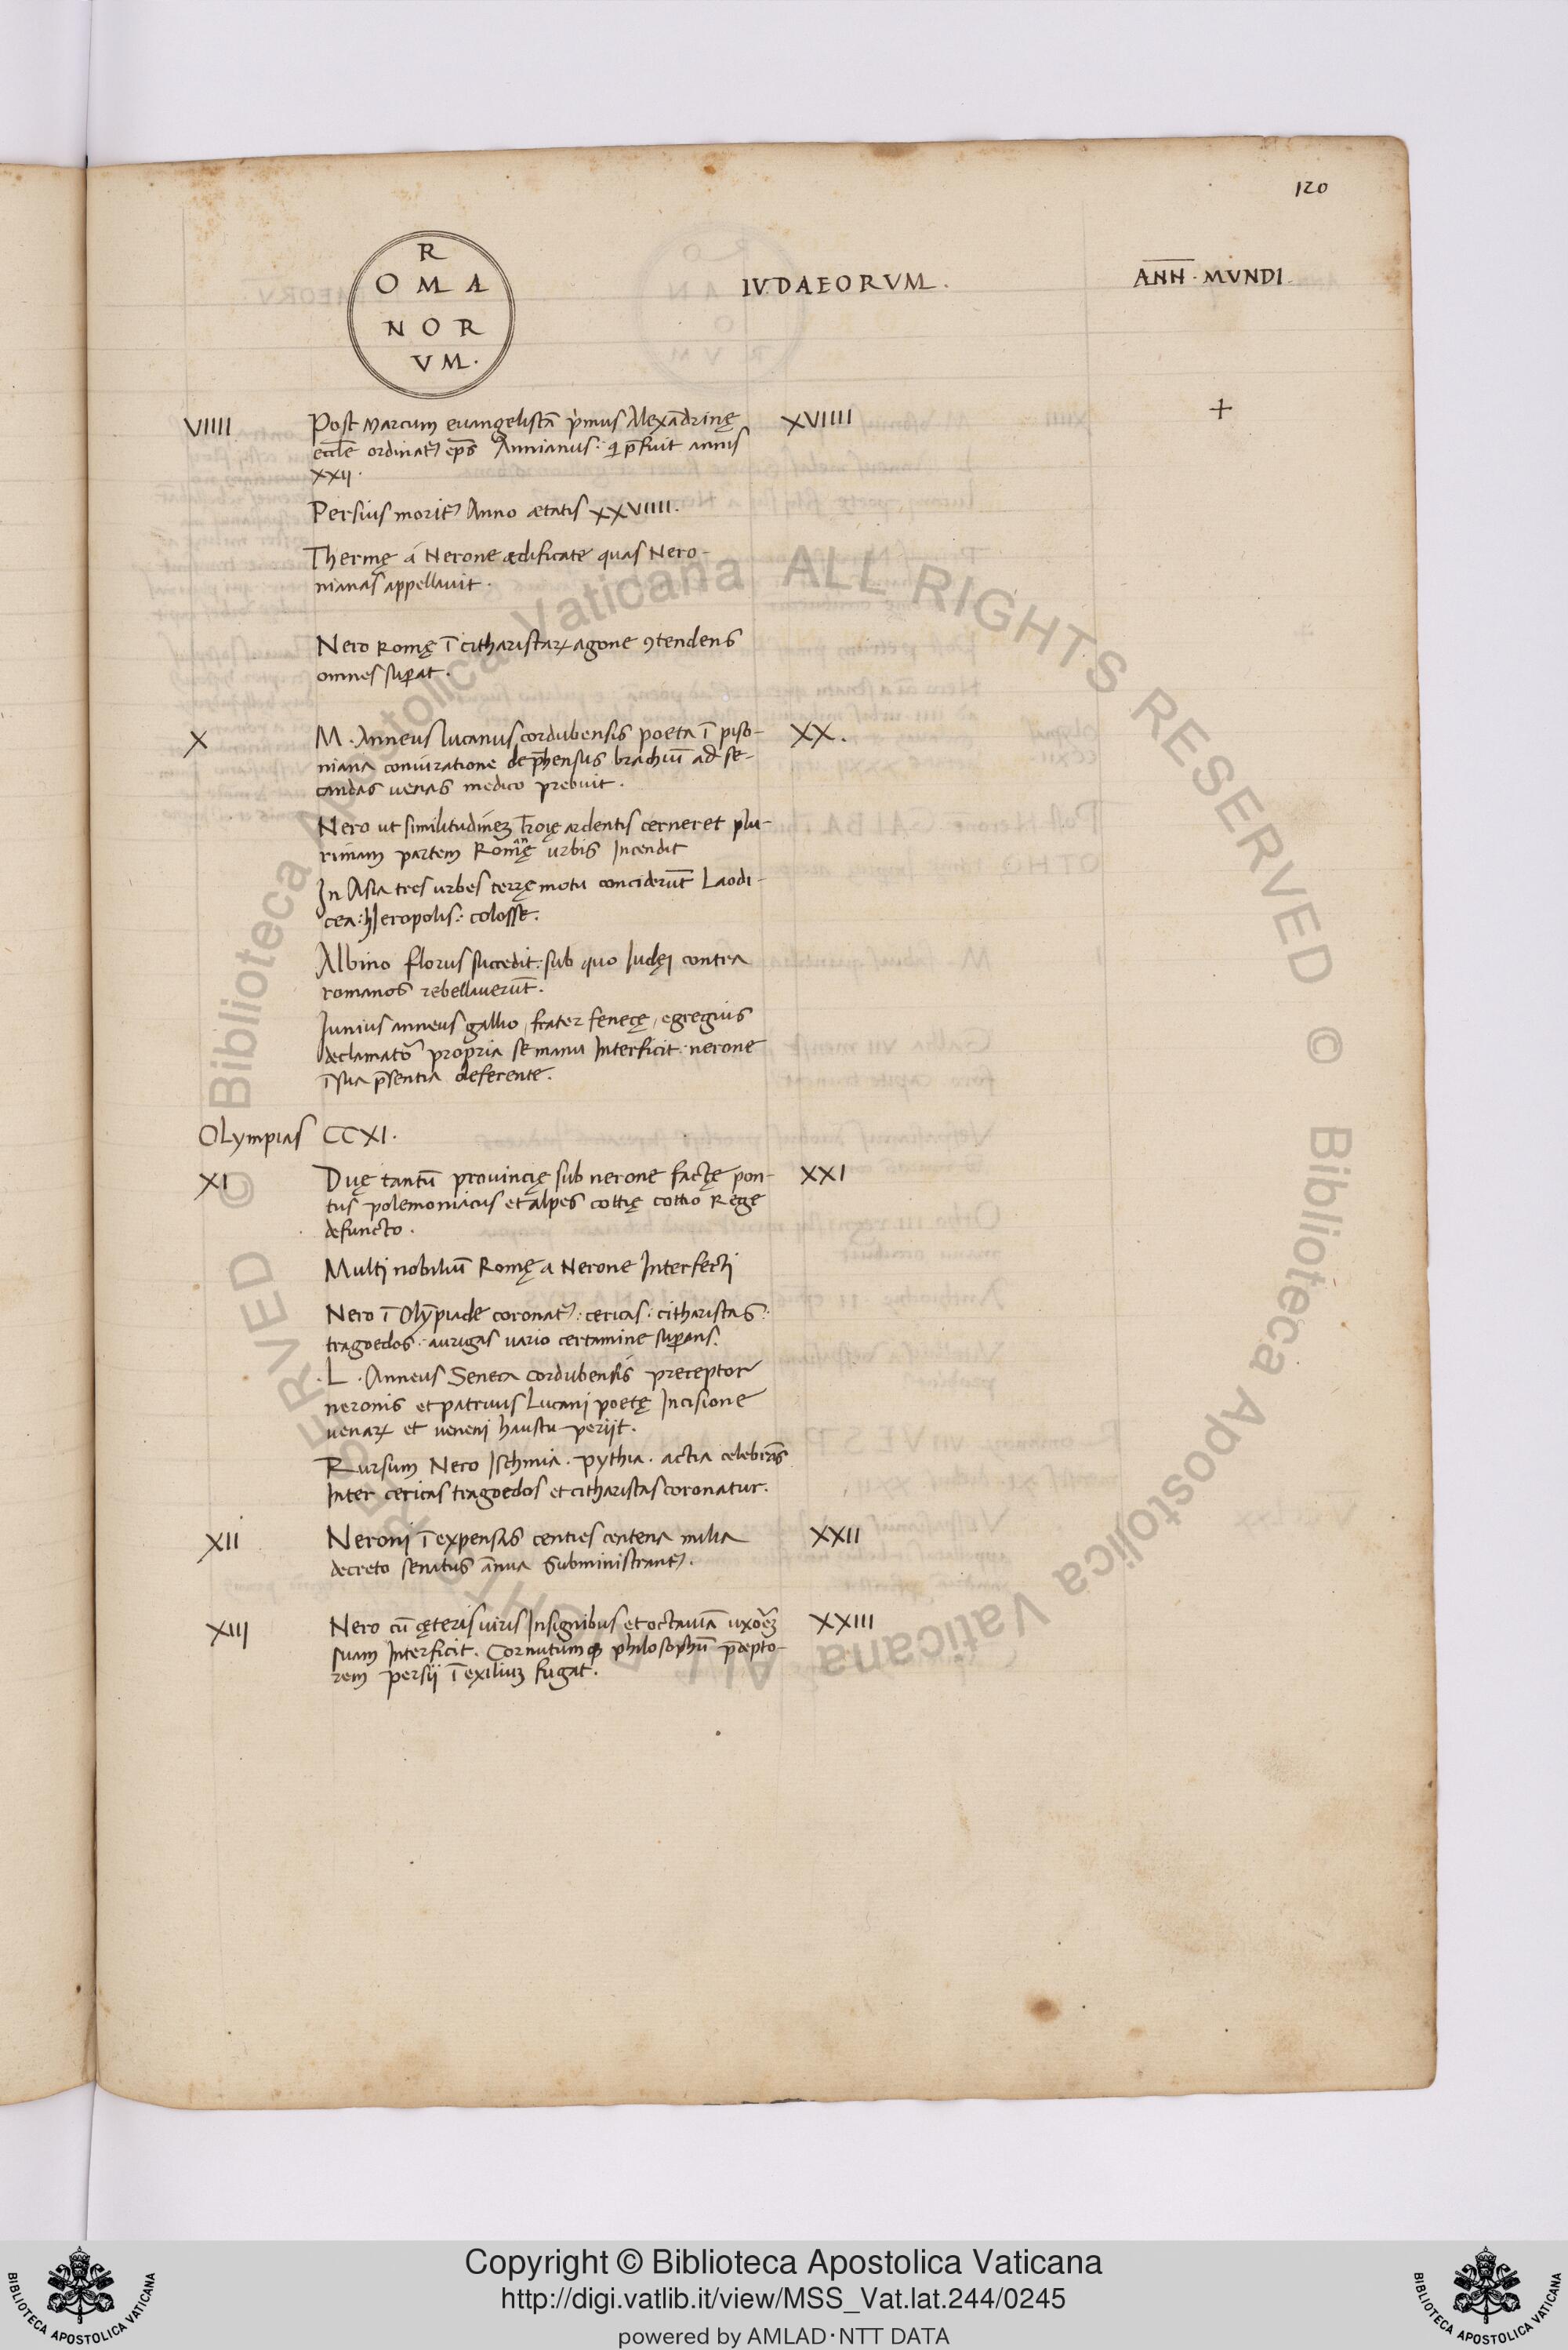 120
R
OMA
NOR
VM.
IVDAEORVM.
AN̅N̅ · MVNDI
VIIII Post Marcum euangelistā prͥmus Alexādrinę XVIIII +
eccl̄e ordinat᾽ ep̄s Annianus: q p̄fuit annis
XXII.
Persius morit᾽ Anno ætatis XXVIIII.
Thermę á Nerone ædificate quas Nero-
nianas appellauit.
Nero Romę ī citharistaꝝ agone ꝯtendens
omnes suꝑat.
X M. Anneus lucanus cordubensis poeta ī piso- XX.
niana coniuratione dep̄hensus brachiū ad se-
candas uenas medico prebuit.
Nero ut similitudineꝫ troię ardentis cerneret plu-
rimam partem Romanę urbis Incendit
In Asia tres urbes terręmotu conciderūt Laodi-
cea: hIeropolis: colosse.
Albino florus succedit: sub quo Iudęi contra
romanos rebellauerūt.
Iunius anneus gallio, frater senecę, egregius
declamator propria se manu Interficit: nerone
ī sua p̄sentia deferente.
OLympias CCXI.
XI Duę tantū prouincię sub nerone factę pon- XXI
tus polemoniacus et alpes cottię cottio Rege
defuncto.
Multi nobiliū Romę a Nerone Interfecti
Nero ī Olȳpiade coronat᾽: cericas: citharistas:
tragoedos: aurigas uario certamine suꝑans.
.L. Anneus Seneca cordubensis preceptor
neronis et patruus Lucani poetę Incisione
uenaꝝ et ueneni haustu periit.
Rursum Nero Isthmia. pythia. actia celebrās
Inter cericas tragoedos et citharistas coronatur.
XII Neroni ī expensas centies centena milia XXII
decreto senatus ānua Subministrant᾽.
XIII Nero cū cęteris uiris Insignibus et octauiā uxoreꝫ XXIII
suam Interficit. Cornutumqꝫ philosophū p̄cepto-
rem persij ī exiliuꝫ fugat.
© Biblioteca Apostolica Vaticana ALL RIGHTS RESERVED © Biblioteca Apostolica Vaticana ALL RIGHTS RESERVED
Copyright © Biblioteca Apostolica Vaticana
http://digi.vatlib.it/view/MSS_Vat.lat.244/0245
powered by AMLAD·NTT DATA
BIBLIOTECA APOSTOLICA VATICANA
BIBLIOTECA APOSTOLICA VATICANA